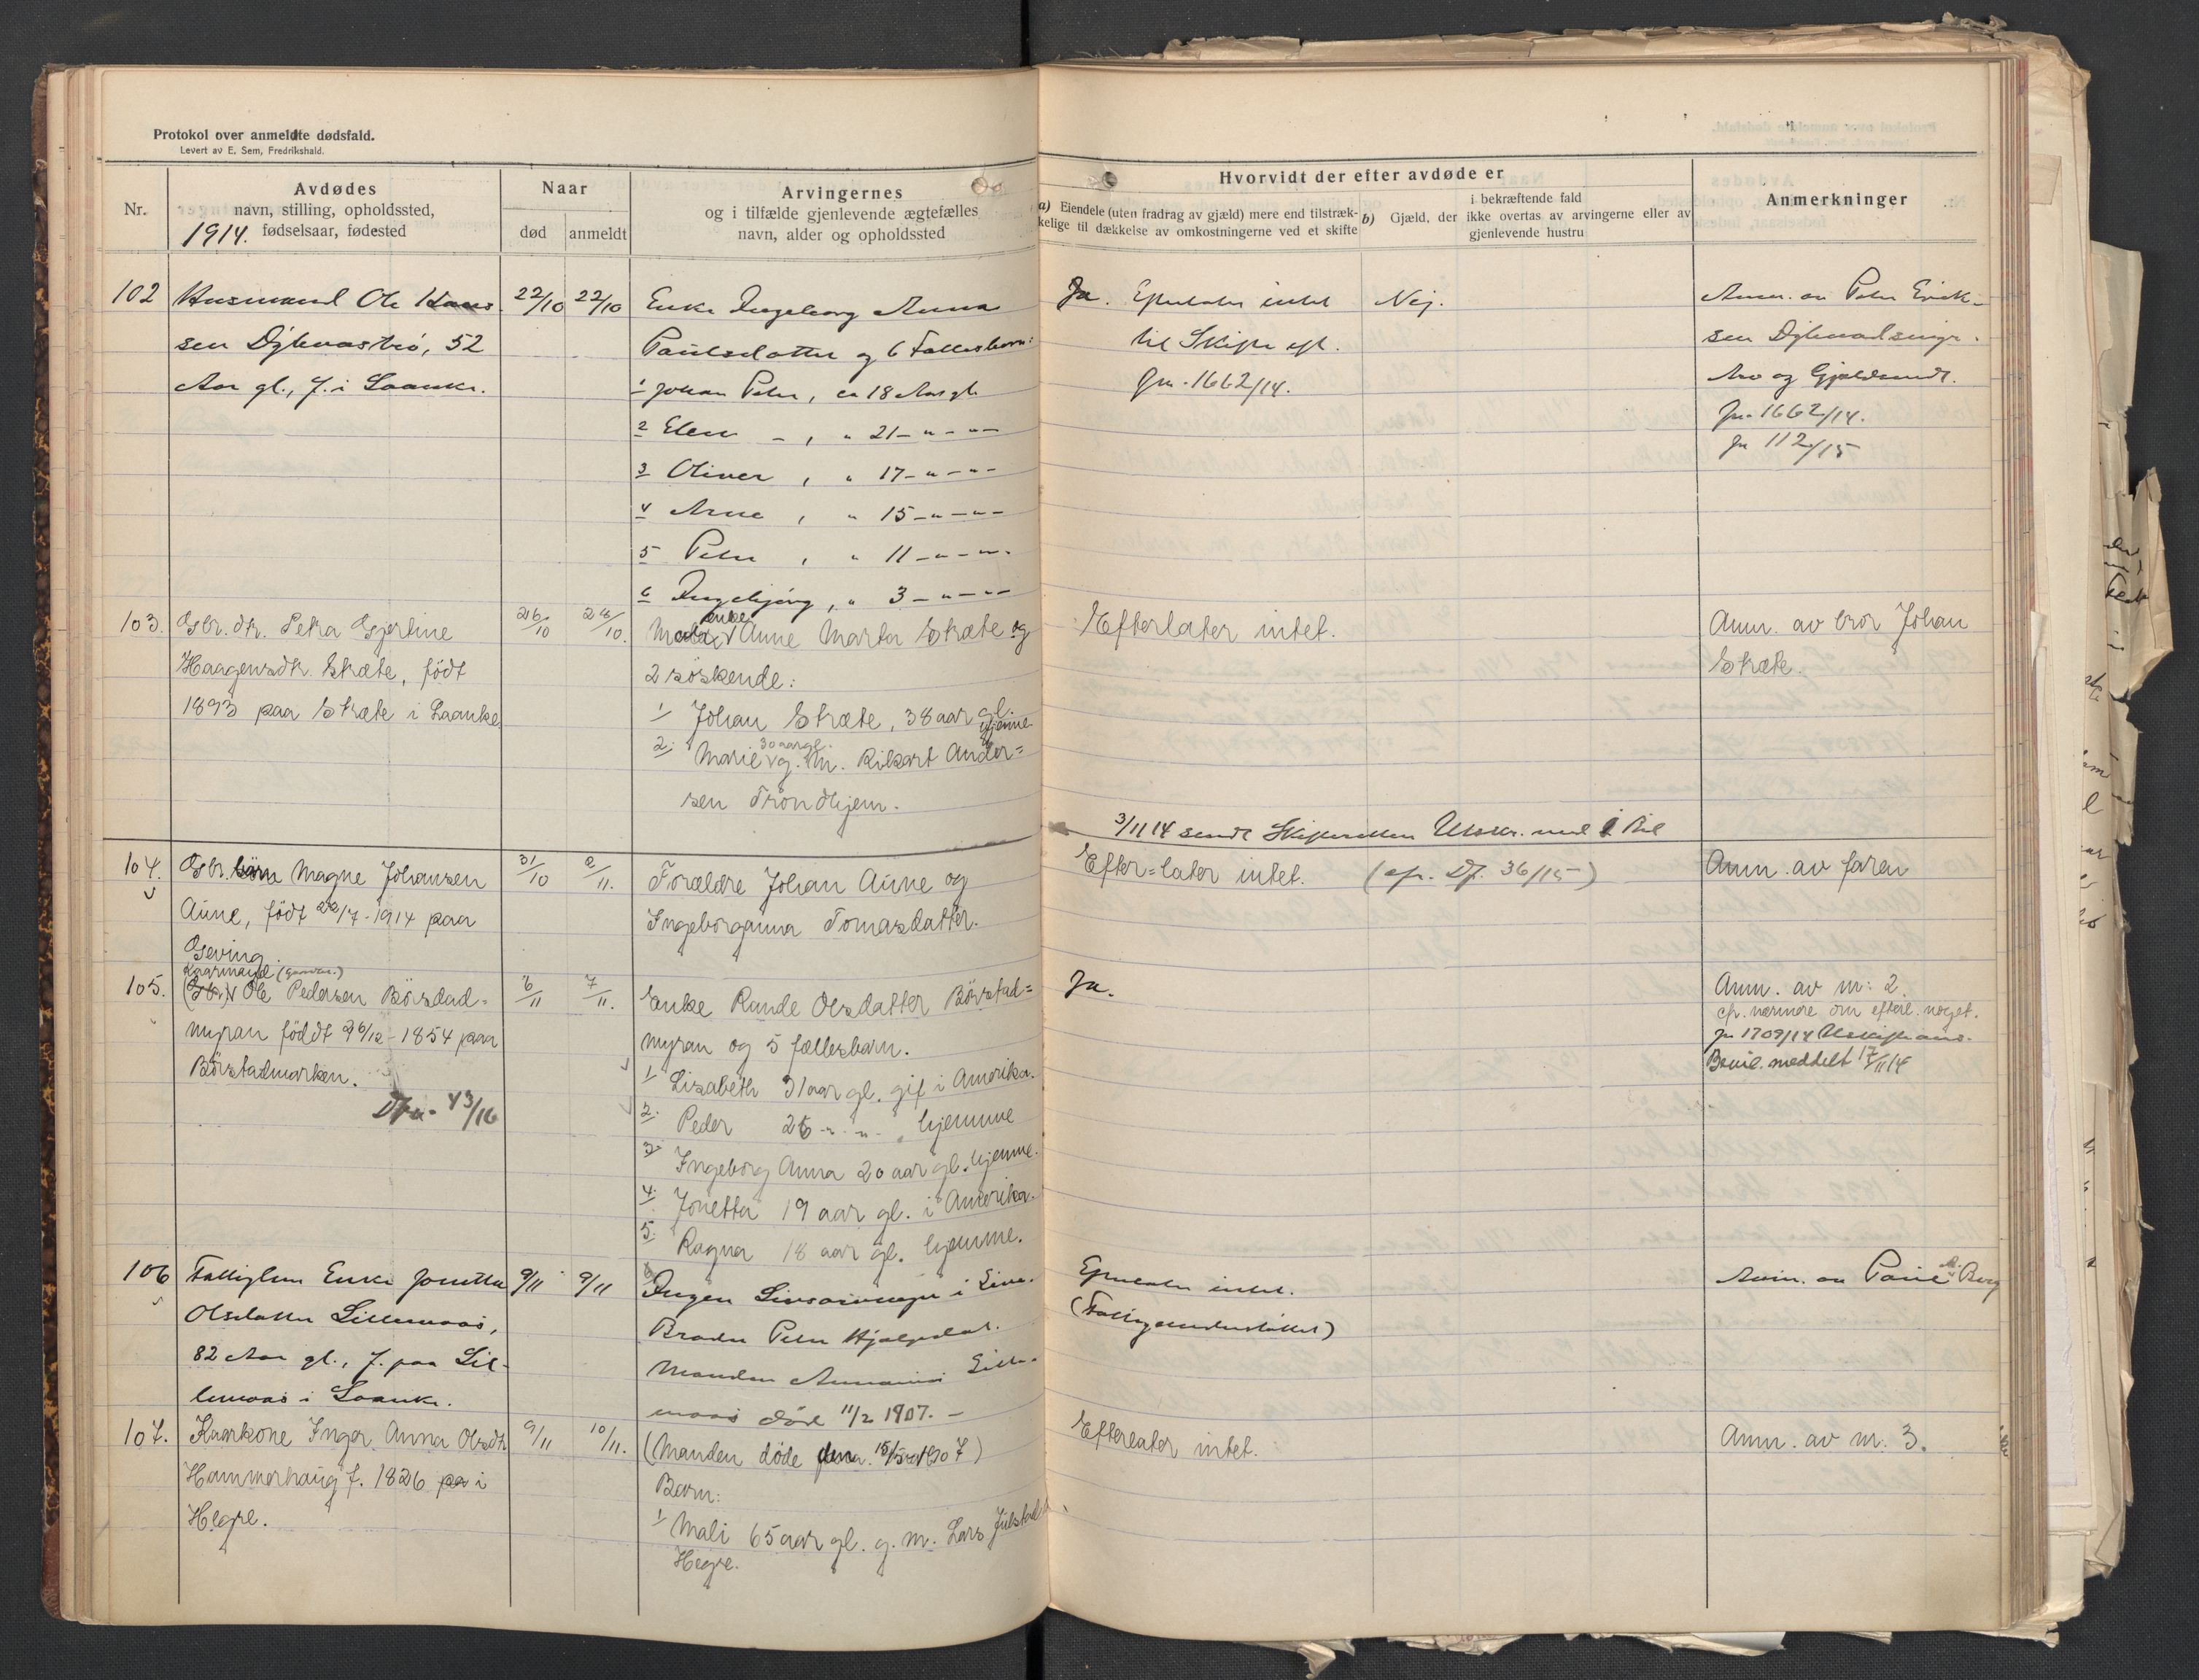 Protokol over anmeldte dødsfald.
Levert av E. Sem, Fredrikshald.
Nr.
Avdødes
navn, stilling, opholdssted,
1914. fødselsaar, fødested
Naar
død
anmeldt
Arvingernes
og i tilfælde gjenlevende ægtefælles
navn, alder og opholdssted
Hvorvidt der efter avdøde er
a) Eiendele (uten fradrag av gjæld) mere end tilstræk-
kelige til dækkelse av omkostningerne ved et skifte
b) Gjæld, der
i bekræftende fald
ikke overtas av arvingerne eller av
gjenlevende hustru
Anmerkninger
102 Husmand Ole Hans
sen 52
Aar gl., f. i Laanke.
22/10 22/10
Enke Ingeborg Anna
Paulsdatter og 6 Fællesbørn:
1 Johan Peter, ca 18 Aar gl.
2 Elen - , " 21 - " - " -
3 Oliver , " 17 - " - " -
4 Arne , " 15 - " - " -
5 Peter , " 11 - " - " -
6 Ingebjørg, " 3 - " - " -
Ja. Efterlater intet
til Skifte
Jn. 1662/14.
Nej.
Anm. av Peter Erik-
sen
Arv og
Jn. 1662/14.
Jn 112/15
103. Gbr. dtr. Petra Gjertine
Haagensdtr. Stræte, født
1893 paa Stræte i Laanke
26/10 28/10.
enke
Anne Marta Stræte og
2 søskende:
1/ Johan Stræte, 38 aar gl.
hjemme.
2/ Marie 30 aar gl. g. m. Rikart Ander=
sen Trondhjem.
Efterlater intet.
Anm. av bror Johan
Stræte.
3/11 14 sendt Skifteretten Utskr. med 1 Bil
104. Gbr. barn Magne Johansen
Aune, født 22/7-1914 paa
Geving.
31/10 2/11.
Forældre Johan Aune og
Ingeborganna Tomasdatter.
Efter=later intet. (cfr. Df. 36/15)
Anm. av faren
105. Kaarmand
Ole Pedersen Börstad=
myran föddt 26/12-1854 paa
Börstadmarken.
43/16
6/11 7/11.
Enke Rande Olsdatter Börstad=
myran og 5 fællesbarn.
1/ Lisabeth 31 aar gl. gif i Amerika.
2/ Peder 26 - " - " - hjemme
3/ Ingeborg Anna 20 aar gl. hjemme.
4/ Jonetta 19 aar gl. i Amerika.
5. Ragna 18 aar gl. hjemme.
Ja.
Anm. av nr: 2.
cfr. nærmere om efterl. noget.
Jn 1709/14
Bevil. meddelt 17/11 14
106 Fattiglem Enke Jonetta
Olsdatter Lillemoas,
82 Aar gl., f. paa Lil-
lemoas i Laanke.
9/11 9/11
Ingen Livsarvinger i Live.
Broder Peter
Manden Lille-
moas døde 11/2 1907. -
Efterlater intet.
(Fattigunderstøttet)
Anm. av Paul M. Berg
107. Kaarkone Inger Anna Olsdtr
Hammerhaug f. 1826 i
Hegre.
9/11 10/11.
(Manden döde 1907)
Barn:
1/ Mali 65 aar gl. g. m. Lars Julstad
Hegre.
Efterlater intet.
Anm. av nr. 3.